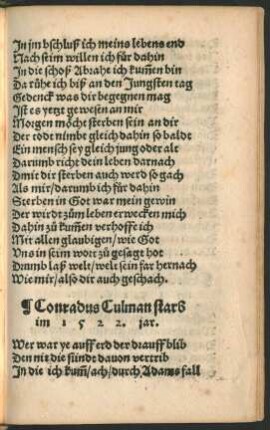 In jm bschluß ich meins lebens end
Nach seim willen ich für dahin
In die schoß Abrahe ich kum̃en bin
Da rühe ich biß an den Jungsten tag
Gedenck was dir begegnen mag
Ist es yetz gewesen an mir
Morgen möcht sterben sein an dir
Der todt nimbt gleich dahin so baldt
Ein mensch sey gleich jung oder alt
Darumb richt dein leben darnach
Dmit dir sterben auch werd so gach
Als mir/darumb ich für dahin
Sterben in Got war mein gewin
Der wirdt zům leben erwecken mich
Dahin zů kum̃en verhoffe ich
Mit allen glaubigen/wie Got
Vns in seim wort zů gesagt hot
Drumb laß welt/welt sein far hernach
Wie mir/also dir auch geschach.
¶ Conradus Culman starb
im 1 5 2 2. jar.
Wer war ye auff erd der drauff blib
Den nit die sündt dauon vertrib
In die ich kum̃/ach/durch Adams fall